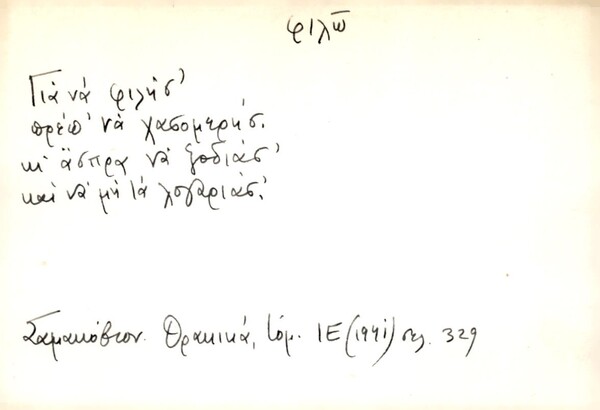 φιλῶ
Γιὰ νά φιλήσ'
πρέπ' νὰ χασομερήσ.
κι' ἄσπρα νὰ ξοδιάσ'
καὶ νὰ μὴ τά λογαριάσ'.
Σαμακόβιον. Θρακικά, τόμ. ΙΕ (1941) σελ. 329